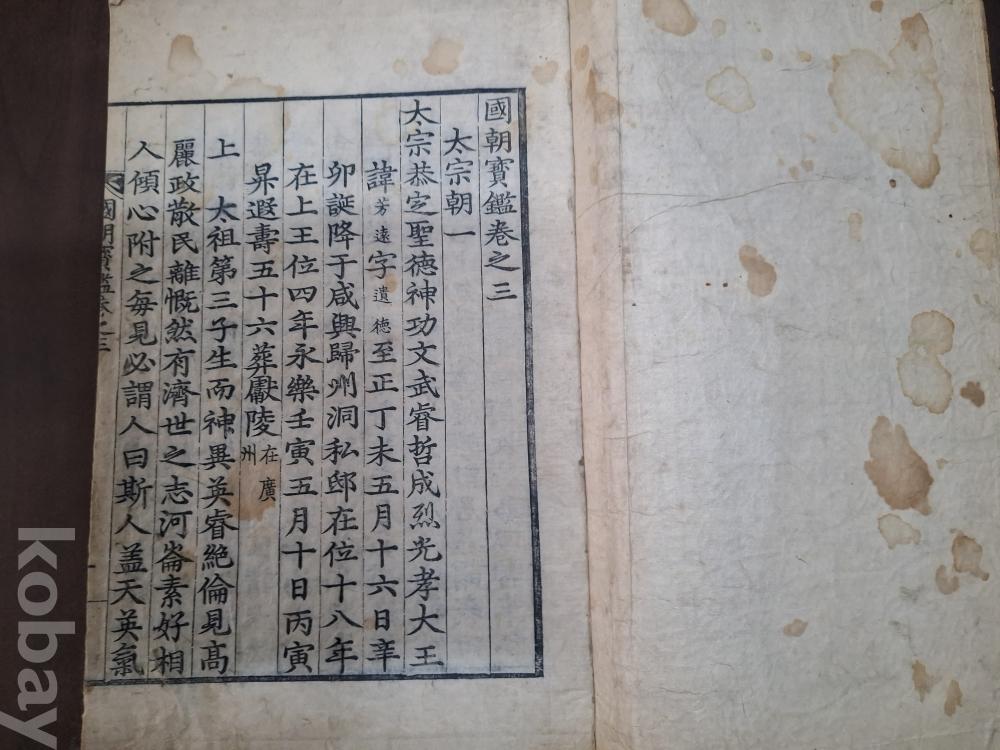 國朝寶鑑卷之三
太宗朝一
太宗恭定聖德神功文武睿哲成烈光孝大王
諱芳遠字遺德至正丁未五月十六日辛
卯誕降于咸興歸州洞私邸在位十八年
在上王位四年永樂壬寅五月十日丙寅
昇遐壽五十六葬獻陵在廣州
上 太祖第三子生而神異英睿絶倫見高
麗政散民離慨然有濟世之志河崙素好相
人傾心附之每見必謂人曰斯人盖天英氣
國朝寶鑑卷之三
kobay